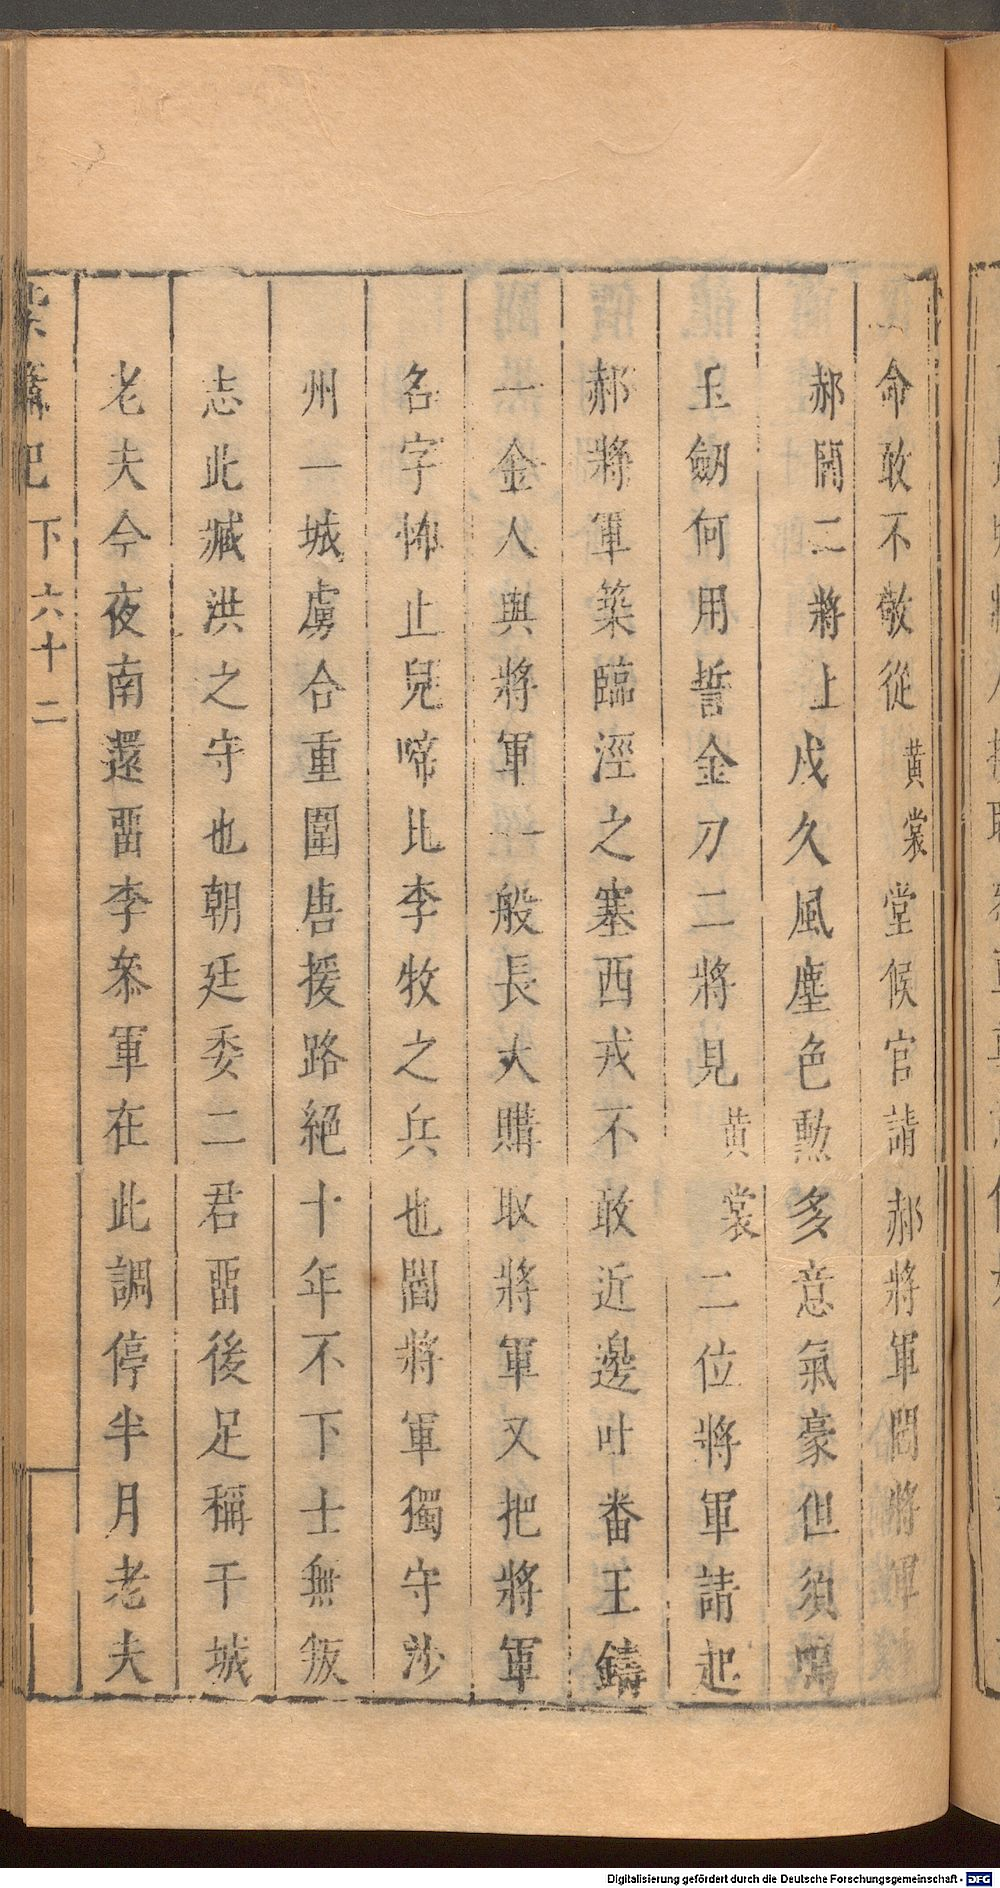 命敢不敬從黄裳堂候官請郝將軍閻將軍
郝閻二將上戍久風塵色勲多意氣豪但須鳴
玉劒何用誓金刀二將見黄裳二位將軍請起
郝將軍築臨涇之塞西戎不敢近邊吐番王鑄
一金人與將軍一般長大購取將軍又把將軍
名字怖止兒啼比李牧之兵也閻將軍獨守沙
州一城虜合重圍唐援路絕十年不下士無叛
志此臧洪之守也朝廷委二君畱後足稱干城
老夫今夜南還畱李叅軍在此調停半月老夫
紫簫記 下 六十二
Digitalisierung gefördert durch die Deutsche Forschungsgemeinschaft - DFG